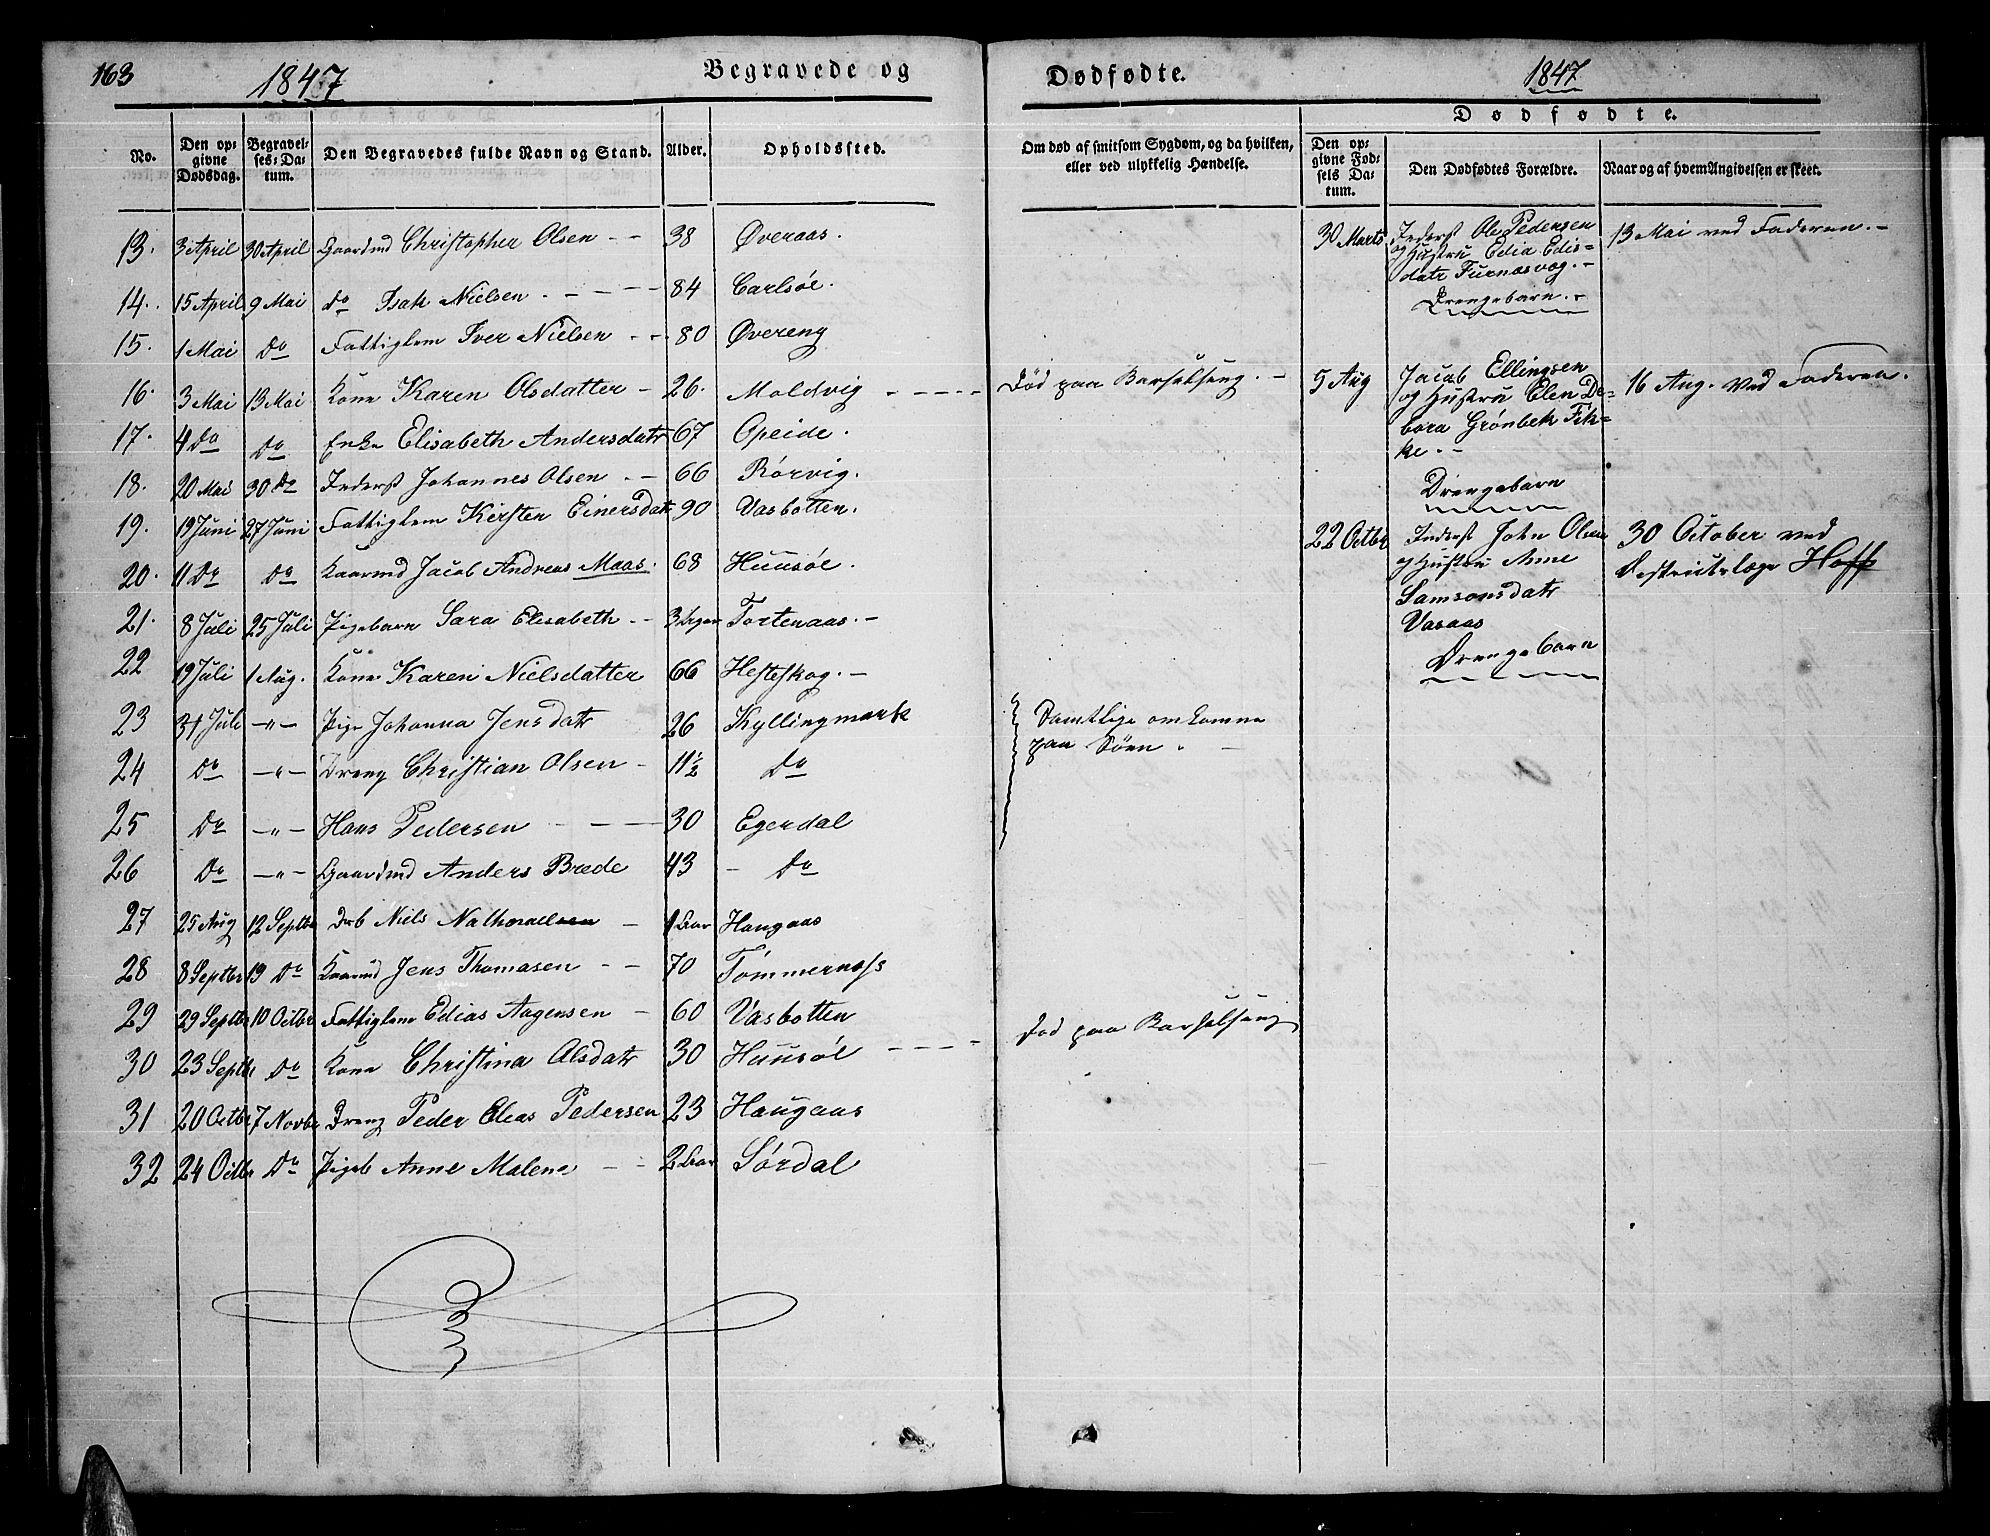 163 1847 Begravede og Dødfødte. 1847
Dødfødte.
No. Den opgivne Dødsdag. Begravelses-Datum. Den Begravedes fulde Navn og Stand. Alder. Opholdssted. Om død af smitsom Sygdom, og da hvilken, eller ved ulykkelig Hændelse. Den opgivne Fødsels Datum. Den Dødfødtes Forældre. Naar og af hvem Angivelsen er skeet.
13. 3 April 30 April Gaardmd Christopher Olsen 38 Øveraas.
14. 15 April 9 Mai Do Isak Nielsen 84 Carlsöe.
15. 1 Mai Do Fattiglem Iver Nielsen 80 Övereng
16. 3 Mai 13 Mai Kone Karen Olsdatter 26. Moldvig Död paa Barselseng.
17. 4 Do Do Enke Elisabeth Andersdatr 67 Opeide.
18. 20 Mai 30 Do Inderst Johannes Olsen 66 Rörvig.
19. 19 Juni 27 Juni Fattiglem Kirsten Einersdatr 90 Vasbotten.
20. 11 Do Do Kaarmd Jacob Andreas Maas. 68 Huusöe.
21. 8 Juli 25 Juli Pigebarn Sara Elisabeth 3 Dagar Tortenaas.
22 19 Juli 1 Aug. Kone Karen Nielsdatter 66 Hesteskog.
23 31 Juli -"- Pige Johanna Jensdatr 26 Kyllingmark Samtlige omkomne
paa Söen.
24 Do -"- Dreng Christian Olsen 11½ Do
25 Do -"- Hans Pedersen 30 Egerdal
26 Do -"- Gaardmd Anders Brede 43 Do
27 25 Aug 12 Septbr Drb Niels Nathanaelsen 1 Aar Haugaas
28 8 Septbr 19 Do Kaarmd Jens Thomasen 70 Tömmernæss
29 29 Septbr 10 Octbr Fattiglem Edias Aagensen 60 Vasbotten
30 23 Septbr Do Kone Christina Olsdatr 30 Huusöe Död paa Barselseng
31 20 Octbr 7 Novbr Dreng Peder Elias Pedersen 23 Haugaas
32 24 Octbr Do Pigeb Anne Malene 2 Aar Sördal
30 Marts Inderst Ole Pedersen 13 Mai ved Faderen.
og Hustru Edia Edis-
datr Furnæsvog.
Drengebarn.
5 Aug Jacob Ellingsen 16 Aug. ved Faderen.
og Hustru Elen De-
bora Grönbek Fik-
ke.
Drengebarn
22 Octbr Inderst John Olsen 30 October ved
og Hustru Anne Districtslæge Hoff
Samsonsdatr
Vasaas
Drengebarn